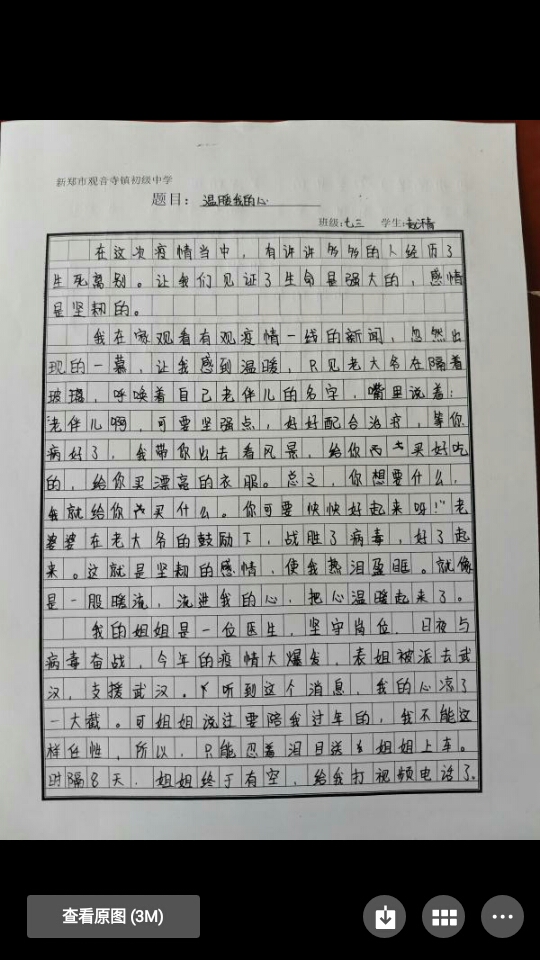 新郑市观音寺镇初级中学
题目：温暖我的心
班级:七三 学生:
在这次疫情当中，有许许多多的人经历了
生死离别。让我们见证了生命是强大的，感情
是坚韧的。
我在家观看有观疫情一线的新闻，忽然出
现的一幕，让我感到温暖，只见老大爷在隔着
玻璃，呼唤着自己老伴儿的名字，嘴里说着：
老伴儿啊，可要坚强点，好好配合治疗，等你
病好了，我带你出去看风景，给你买好吃
的，给你买漂亮的衣服。总之，你想要什么，
我就给你买什么。你可要快快好起来呀!"老
婆婆在老大爷的鼓励下，战胜了病毒，好了起
来。这就是坚韧的感情，使我热泪盈眶。就像
是一股暖流，流进我的心，把心温暖起来了。
我的姐姐是一位医生，坚守岗位，日夜与
病毒奋战，今年的疫情大爆发，表姐被派去武
汉，支援武汉。听到这个消息，我的心凉了
一大截。可姐姐说过要陪我过年的，我不能这
样任性，所以，只能忍着泪目送姐姐上车。
时隔8天，姐姐终于有空，给我打视频电话了。
查看原图 (3M)